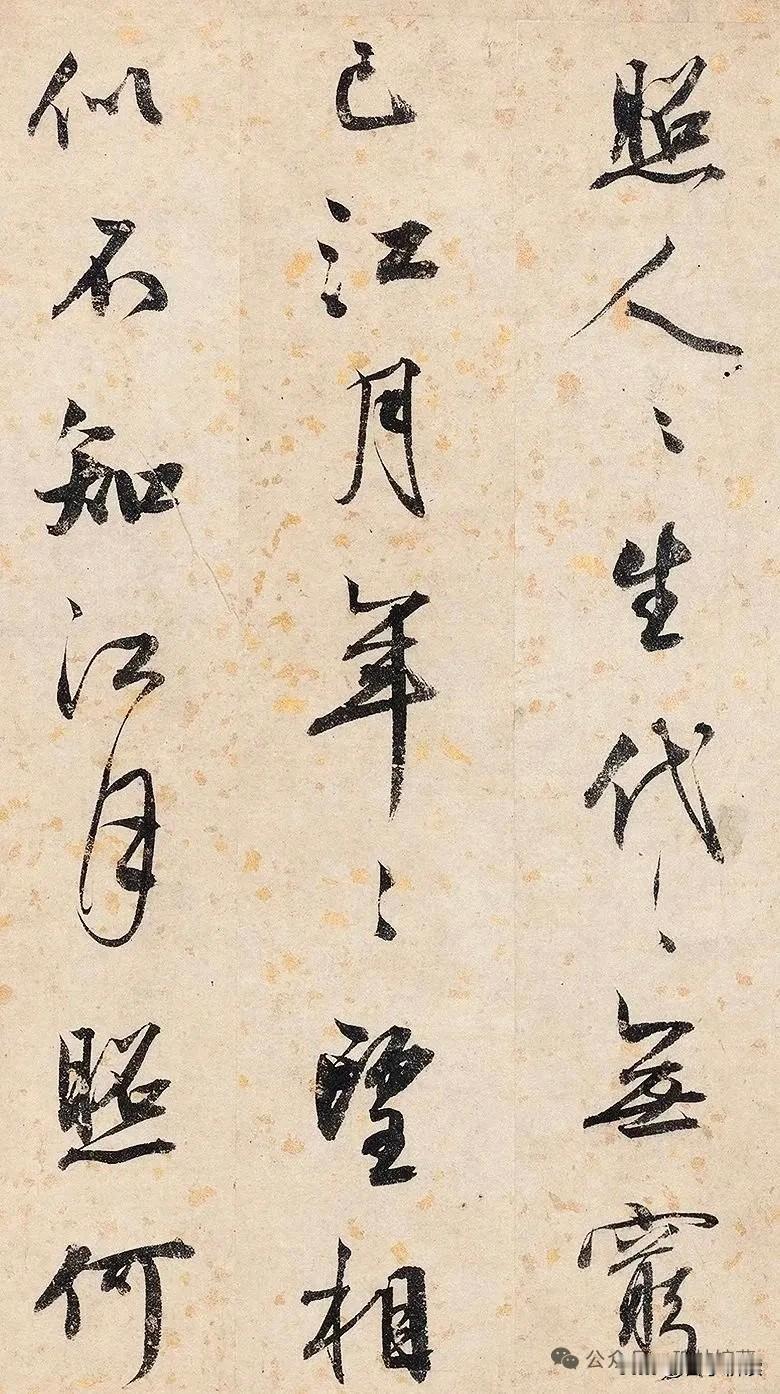 照人〻生代〻無窮
已江月年〻望相
似不知江月照何
公众号